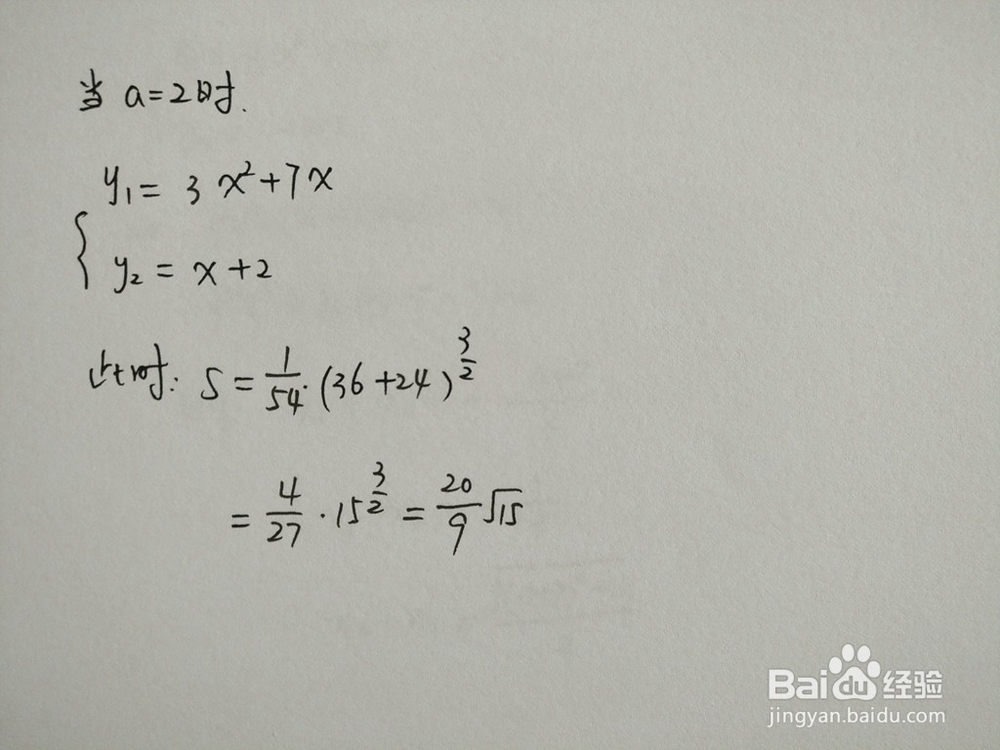 当 a=2时.
y₁ = 3x²+7x
{ y₂ = x+2
此时: S = 1/54·(36+24)^(3/2)
= 4/27 · 15^(3/2) = 20/9 √15
Baidu 经验
jingyan.baidu.com